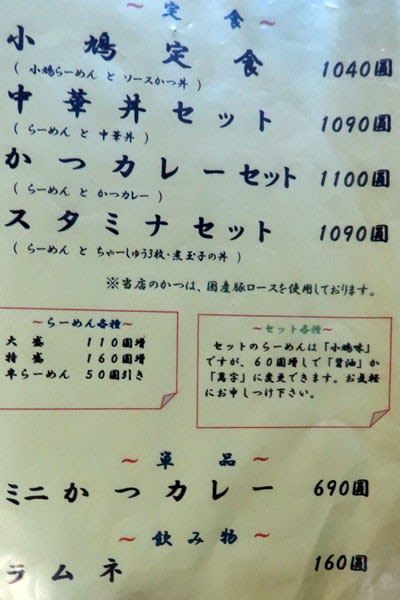 ～ 定 食 ～
小鳩定食 1040圓
（ 小鳩らーめん と ソースかつ丼 ）
中華丼セット 1090圓
（ らーめん と 中華丼 ）
かつカレーセット 1100圓
（ らーめん と かつカレー ）
スタミナセット 1090圓
（ らーめん と ちゃーしゅう3枚・煮玉子の丼 ）
※当店のかつは、国産豚ロースを使用しております。
～らーめん各種～
大 盛 110圓増
特 盛 160圓増
半らーめん 50圓引き
～セット各種～
セットのらーめんは「小鳩味」
ですが、60圓増しで「醤油」か
「萬字」に変更できます。お気軽
にお申しつけ下さい。
～ 単 品 ～
ミニかつカレー 690圓
～ 飲み物 ～
ラムネ 160圓